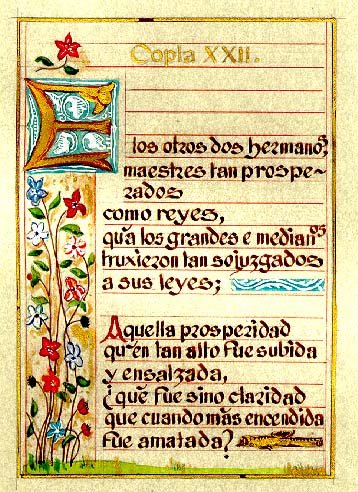 Copla XXII.
E los otros dos hermanos,
maestres tan prospe-
rados
como reyes,
qu'a los grandes e medianos
truxieron tan sojuzgados
a sus leyes;
Aquella prosperidad
qu'en tan alto fue subida
y ensalzada,
¿que fue sino claridad
que cuando más encendida
fue amatada?